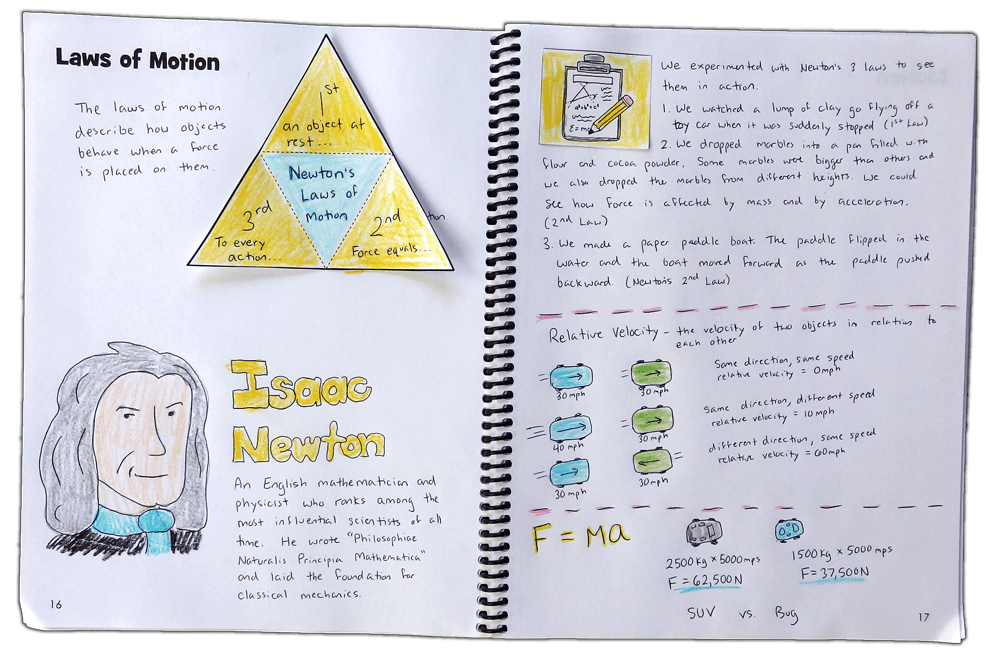 Laws of Motion
The laws of motion
describe how objects
behave when a force
is placed on them.
1st
an object at
rest...
Newton's
Laws of
Motion
3rd
To every
action...
2nd
Force equals...
tion
Isaac
Newton
An English mathematician and
physicist who ranks among the
most influential scientists of all
time. He wrote "Philosophiae
Naturalis Principia Mathematica"
and laid the foundation for
classical mechanics.
16
a²+b²=c²
E=mc
We experimented with Newton's 3 laws to see
them in action.
1. We watched a lump of clay go flying off a
toy car when it was suddenly stopped (1st Law)
2. We dropped marbles into a pan filled with
flour and cocoa powder. Some marbles were bigger than others and
we also dropped the marbles from different heights. We could
see how force is affected by mass and by acceleration.
(2nd Law)
3. We made a paper paddle boat. The paddle flipped in the
water and the boat moved forward as the paddle pushed
backward. (Newton's 2nd Law)
Relative Velocity - the velocity of two objects in relation to
each other
30 mph
30 mph
Same direction, same speed
relative velocity = 0mph
40 mph
30 mph
Same direction, different speed
relative velocity = 10 mph
30 mph
30 mph
different direction, same speed
relative velocity = 60mph
F = Ma
2500 Kg x 5000 mps
F = 62,500N
1500 Kg x 5000 mps
F = 37,500N
SUV vs. Bug
17